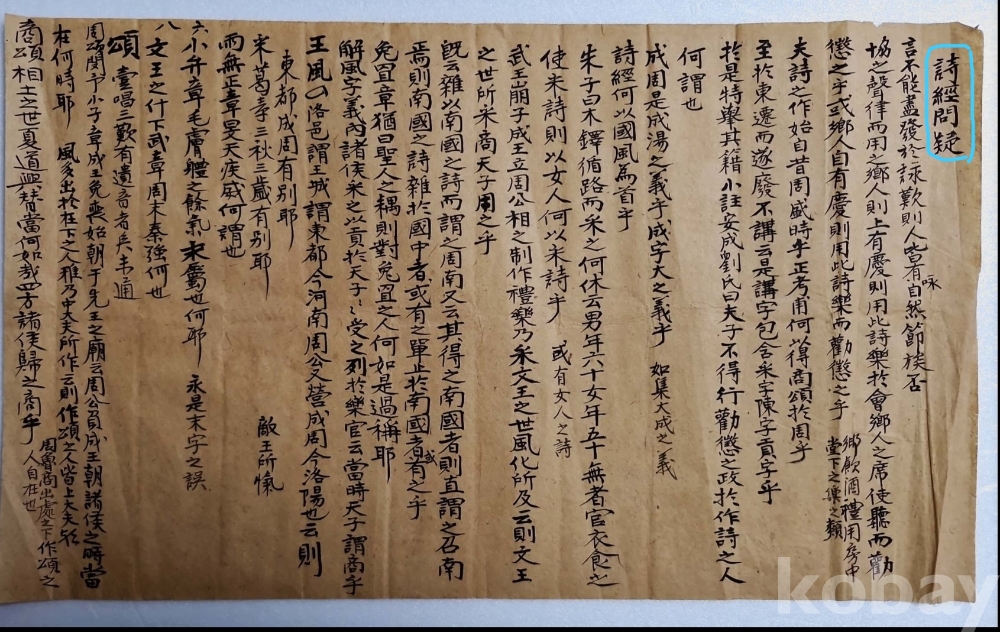 詩經問疑
言不能盡發於詠歎則人皆有自然節族否
咏
協之聲律而用之鄕人則上有慶則用此詩樂於會鄕人之席使聽而勸
懲之乎或鄕人自有慶則用此詩樂而勸懲之乎
鄕飮酒禮用房中
堂下之樂之類
夫詩之作始自昔周盛時乎正考甫何以得商頌於周乎
至於東遷而遂廢不講云是講字包含采字陳字貢字乎
於是特擧其籍小註安成劉氏曰夫子不得行勸懲之政於作詩之人
何謂也
成周是成湯之義乎成字大之義乎 如集大成之義
詩經何以國風爲首乎
朱子曰木鐸循路而采之何休云男年六十女年五十無者官衣食之
使采詩則以女人何以采詩乎 或有女人之詩
武王崩子成王立周公相之制作禮樂乃采文王之世風化所及云則文王
之世所采商天子周之乎
旣云雜以南國之詩而謂之周南又云其得之南國者則直謂之召南
焉則南國之詩雜於國中者或有之單止於南國者或有之乎
兔罝章猶曰聖人之耦則對兔罝之人何如是過稱耶
解風子義內諸侯采之以貢於天子天子受之列於樂官云當時天子謂商乎
王風 洛邑謂王城謂東都今河南周公又營成周今洛陽也云則
東都成周有別耶
采葛章三秋三歲有別耶
敵王所愾
雨無正章旻天疾威何謂也
六小弁章毛膚軆之餘氣末屬也何耶 永是末字之誤
八文王之什下武章周末秦强何也
頌 壹唱三歎有遺音者矣未通
周頌閔予小子章成王免喪始朝于先王之廟云周公負成王朝諸侯之時當
在何時耶 風多出於在下之人雅乃中大夫所作云則作頌之人皆上大夫歟
周魯商出處之下作頌之
人自在也
商頌相土之世夏道興替當何如哉四方諸侯歸之商乎
kobay